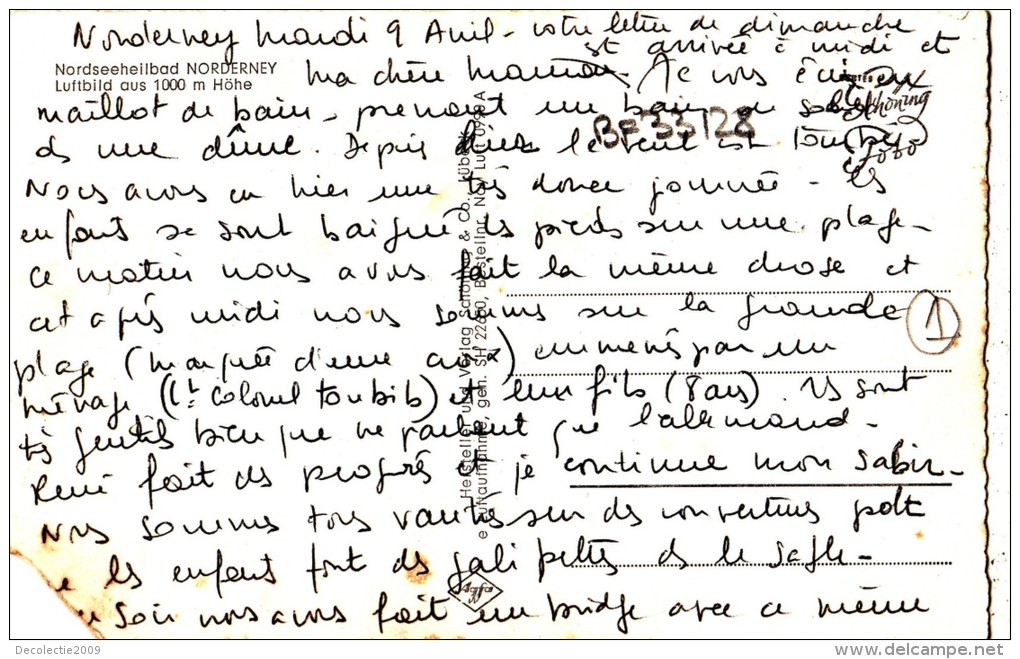 Norderney mardi 9 Avril - votre lettre de dimanche
est arrivée à midi et
Nordseeheilbad NORDERNEY
Luftbild aus 1000 m Höhe
Ma chère Maman - Je vous écris en
maillot de bain - prenant un bain de soleil
BF 33128
ds une dûne. Depuis hier le vent est tombé
Nous avons eu hier une très douce journée - les
enfants se sont baigné les pieds sur une plage -
ce matin nous avons fait la même chose et
cet après midi nous sommes sur la grande
1
plage (marquée d'une croix) emmenés par un
ménage (Lt colonel toubib) et leur fils (8 ans). Ils sont
très gentils bien que ne parlant que l'allemand -
René fait des progrès et je continue mon sabir -
Nous sommes tous vautrés sur des couvertures
les enfants font des galipettes ds le sable -
soir nous avons fait un bridge avec ce même
Hersteller und Verlag Schöning & Co., Lübeck
Luftaufnahme, gen. SH 22 Bestellnr. Nor Luft
Schöning
foto
Agfa
Decolectie2009
www.delcampe.net